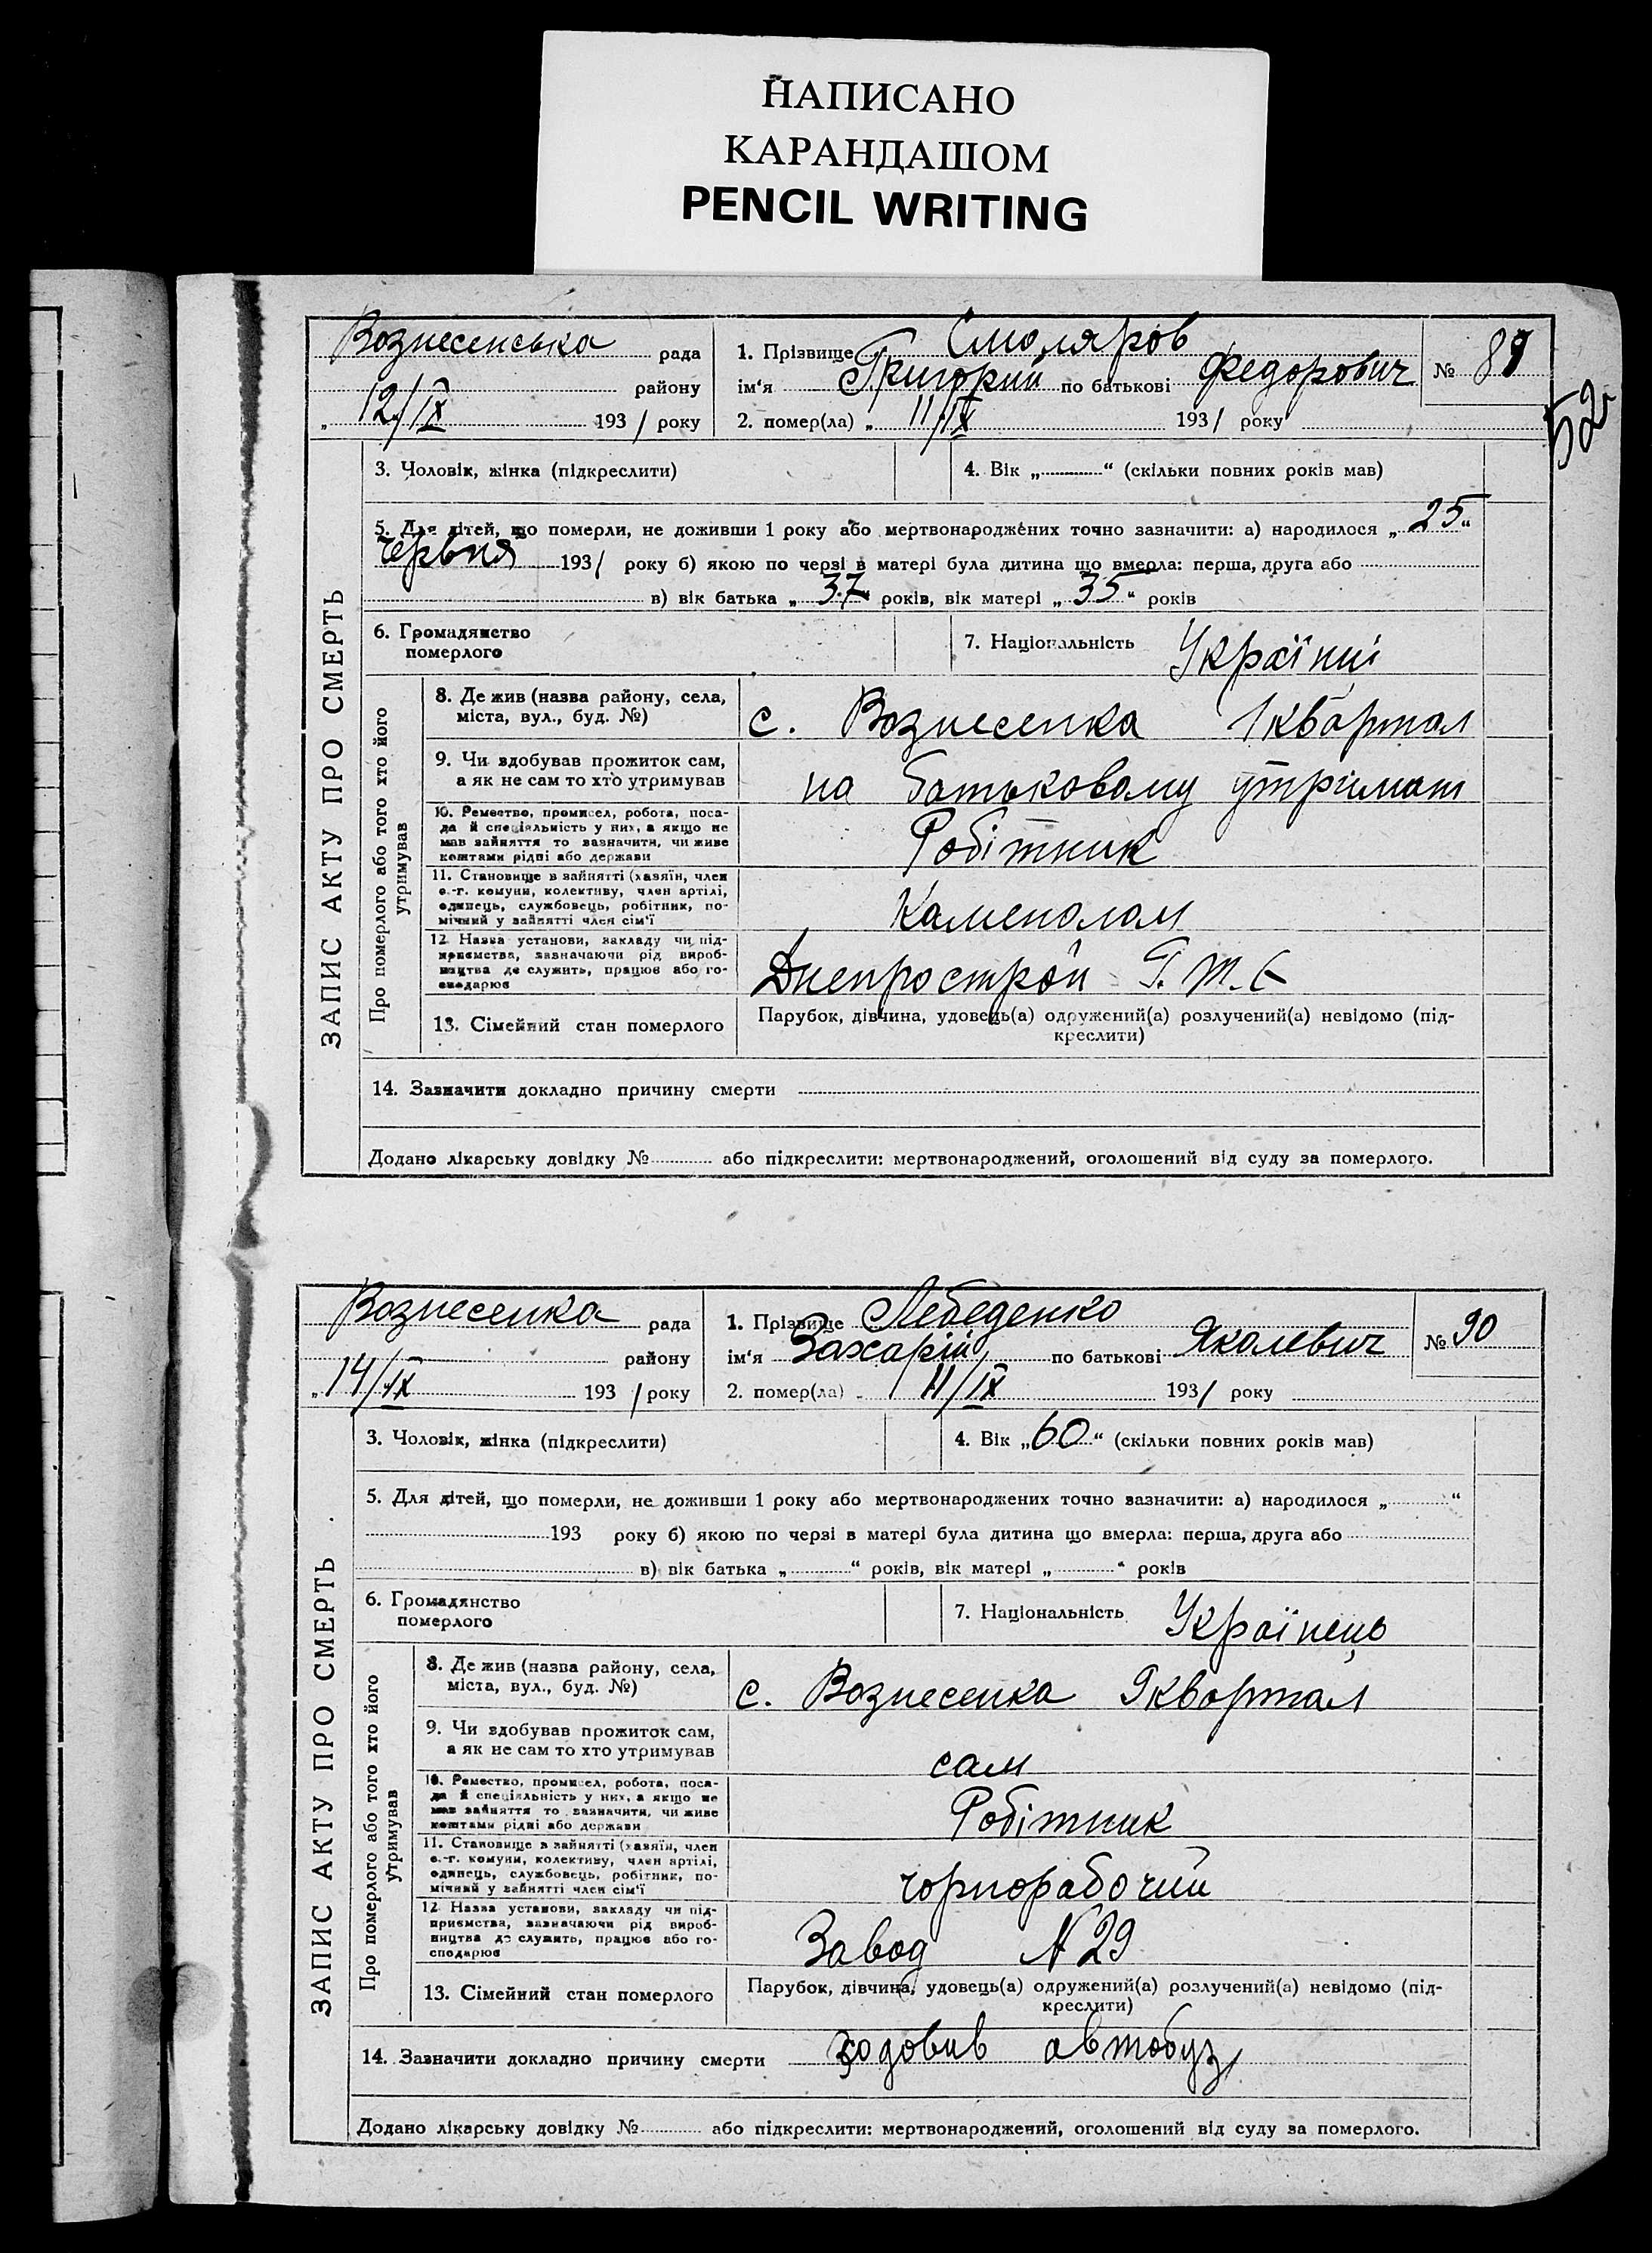 НАПИСАНО
КАРАНДАШОМ
PENCIL WRITING
Вознесенська рада
1. Прізвище Смоляров
№ 89
району
ім‘я Григорий по батькові Федорович
„ 12/IX 1931 року
2. помер(ла) „ 11/IX 1931 року
52
3. Чоловік, жінка (підкреслити)
4. Вік „ “ (скільки повних років мав)
5. Для дітей, що померли, не доживши 1 року або мертвонароджених точно зазначити: а) народилося „ 25 “
червня 1931 року б) якою по черзі в матері була дитина що вмерла: перша, друга або
в) вік батька „ 37 “ років, вік матері „ 35 “ років
6. Громадянство
померлого
7. Національність
ЗАПИС АКТУ ПРО СМЕРТЬ
Про померлого або того хто його
утримував
8. Де жив (назва району, села,
міста, вул., буд. №)
с. Вознесенка 1 квартал
9. Чи здобував прожиток сам,
а як не сам то хто утримував
на батьковому
10. Ремество, промисел, робота, поса-
да й спеціяльність у них, а якщо не
мав зайняття то зазначити, чи живе
коштами рідні або держави
Робітник
11. Становище в зайнятті (хазяїн, член
с.-г. комуни, колективу, член артілі,
одинець, службовець, робітник, по-
мічний у зайнятті член сім‘ї
Каменолом
12 Назва установи, закладу чи під-
приємства, зазначаючи рід вироб-
ництва де служить, працює або го-
сподарює
Днепрострой
13. Сімейний стан померлого
Парубок, дівчина, удовець(а) одружений(а) розлучений(а) невідомо (під-
креслити)
14. Зазначити докладно причину смерти
Додано лікарську довідку № або підкреслити: мертвонароджений, оголошений від суду за померлого.
Вознесенка рада
1. Прізвище Лебеденко
№ 90
району
ім‘я Захарій по батькові Яколевич
„ 14/IX 1931 року
2. помер(ла) 11/IX 1931 року
3. Чоловік, жінка (підкреслити)
4. Вік „ 60 “ (скільки повних років мав)
5. Для дітей, що померли, не доживши 1 року або мертвонароджених точно зазначити: а) народилося „ “
193 року б) якою по черзі в матері була дитина що вмерла: перша, друга або
в) вік батька „ “ років, вік матері „ “ років
6. Громадянство
померлого
7. Національність Українець
ЗАПИС АКТУ ПРО СМЕРТЬ
Про померлого або того хто його
утримував
8. Де жив (назва району, села,
міста, вул., буд. №)
с. Вознесенка квартал
9. Чи здобував прожиток сам,
а як не сам то хто утримував
сам
10. Ремество, промисел, робота, поса-
да й спеціяльність у них, а якщо не
мав зайняття то зазначити, чи живе
коштами рідні або держави
Робітник
11. Становище в зайнятті (хазяїн, член
с.-г. комуни, колективу, член артілі,
одинець, службовець, робітник, по-
мічний у зайнятті член сім‘ї
чорнорабочий
12 Назва установи, закладу чи під-
приємства, зазначаючи рід вироб-
ництва де служить, працює або го-
сподарює
Завод N 29
13. Сімейний стан померлого
Парубок, дівчина, удовець(а) одружений(а) розлучений(а) невідомо (під-
креслити)
14. Зазначити докладно причину смерти автобуз
Додано лікарську довідку № або підкреслити: мертвонароджений, оголошений від суду за померлого.